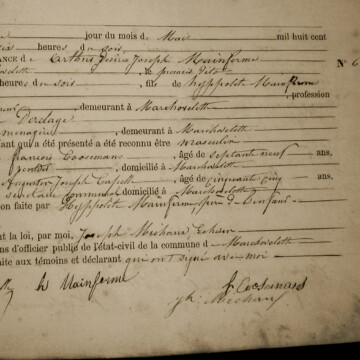 jour du mois de Mai mil huit cent
heures du soir
ANCE de Arthur Joseph Mainferme N° 6
Marchovelette, le premier
heures du soir, fils de Hyppolite Mainferme
, profession
, demeurant à Marchovelette
Derdage
ménagère, demeurant à Marchovelette
ant qui a été présenté a été reconnu être masculin
françois Coosemans, âgé de septante neuf ans,
rentier, domicilié à Marchovelette
Augustin Joseph Capelle, âgé de cinquante cinq ans,
secrétaire communal domicilié à Marchovelette
on faite par Hyppolite Mainferme, père de l'enfant
nt la loi, par moi, Joseph Michaux
ns d'officier public de l'état-civil de la commune de Marchovelette
aite aux témoins et déclarant qui ont signé avec moi
h Mainferme
f. Coosemans
jh. Michaux